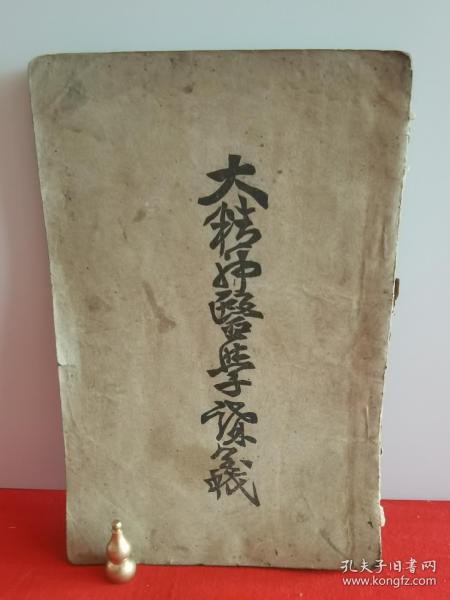 大精神醫學講義
孔夫子旧书网
www.kongfz.com